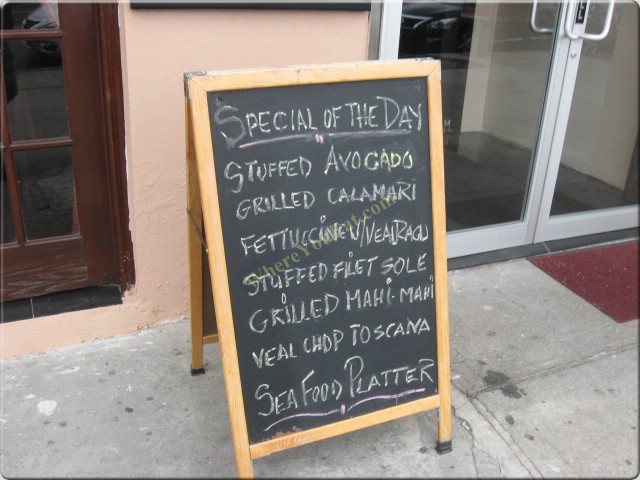 SPECIAL OF THE DAY
STUFFED AVOCADO
GRILLED CALAMARI
FETTUCCINE W/VEAL RAGU
WhereYouEat.com
STUFFED FILET SOLE
GRILLED MAHI-MAHI
VEAL CHOP TOSCANA
SEA FOOD PLATTER